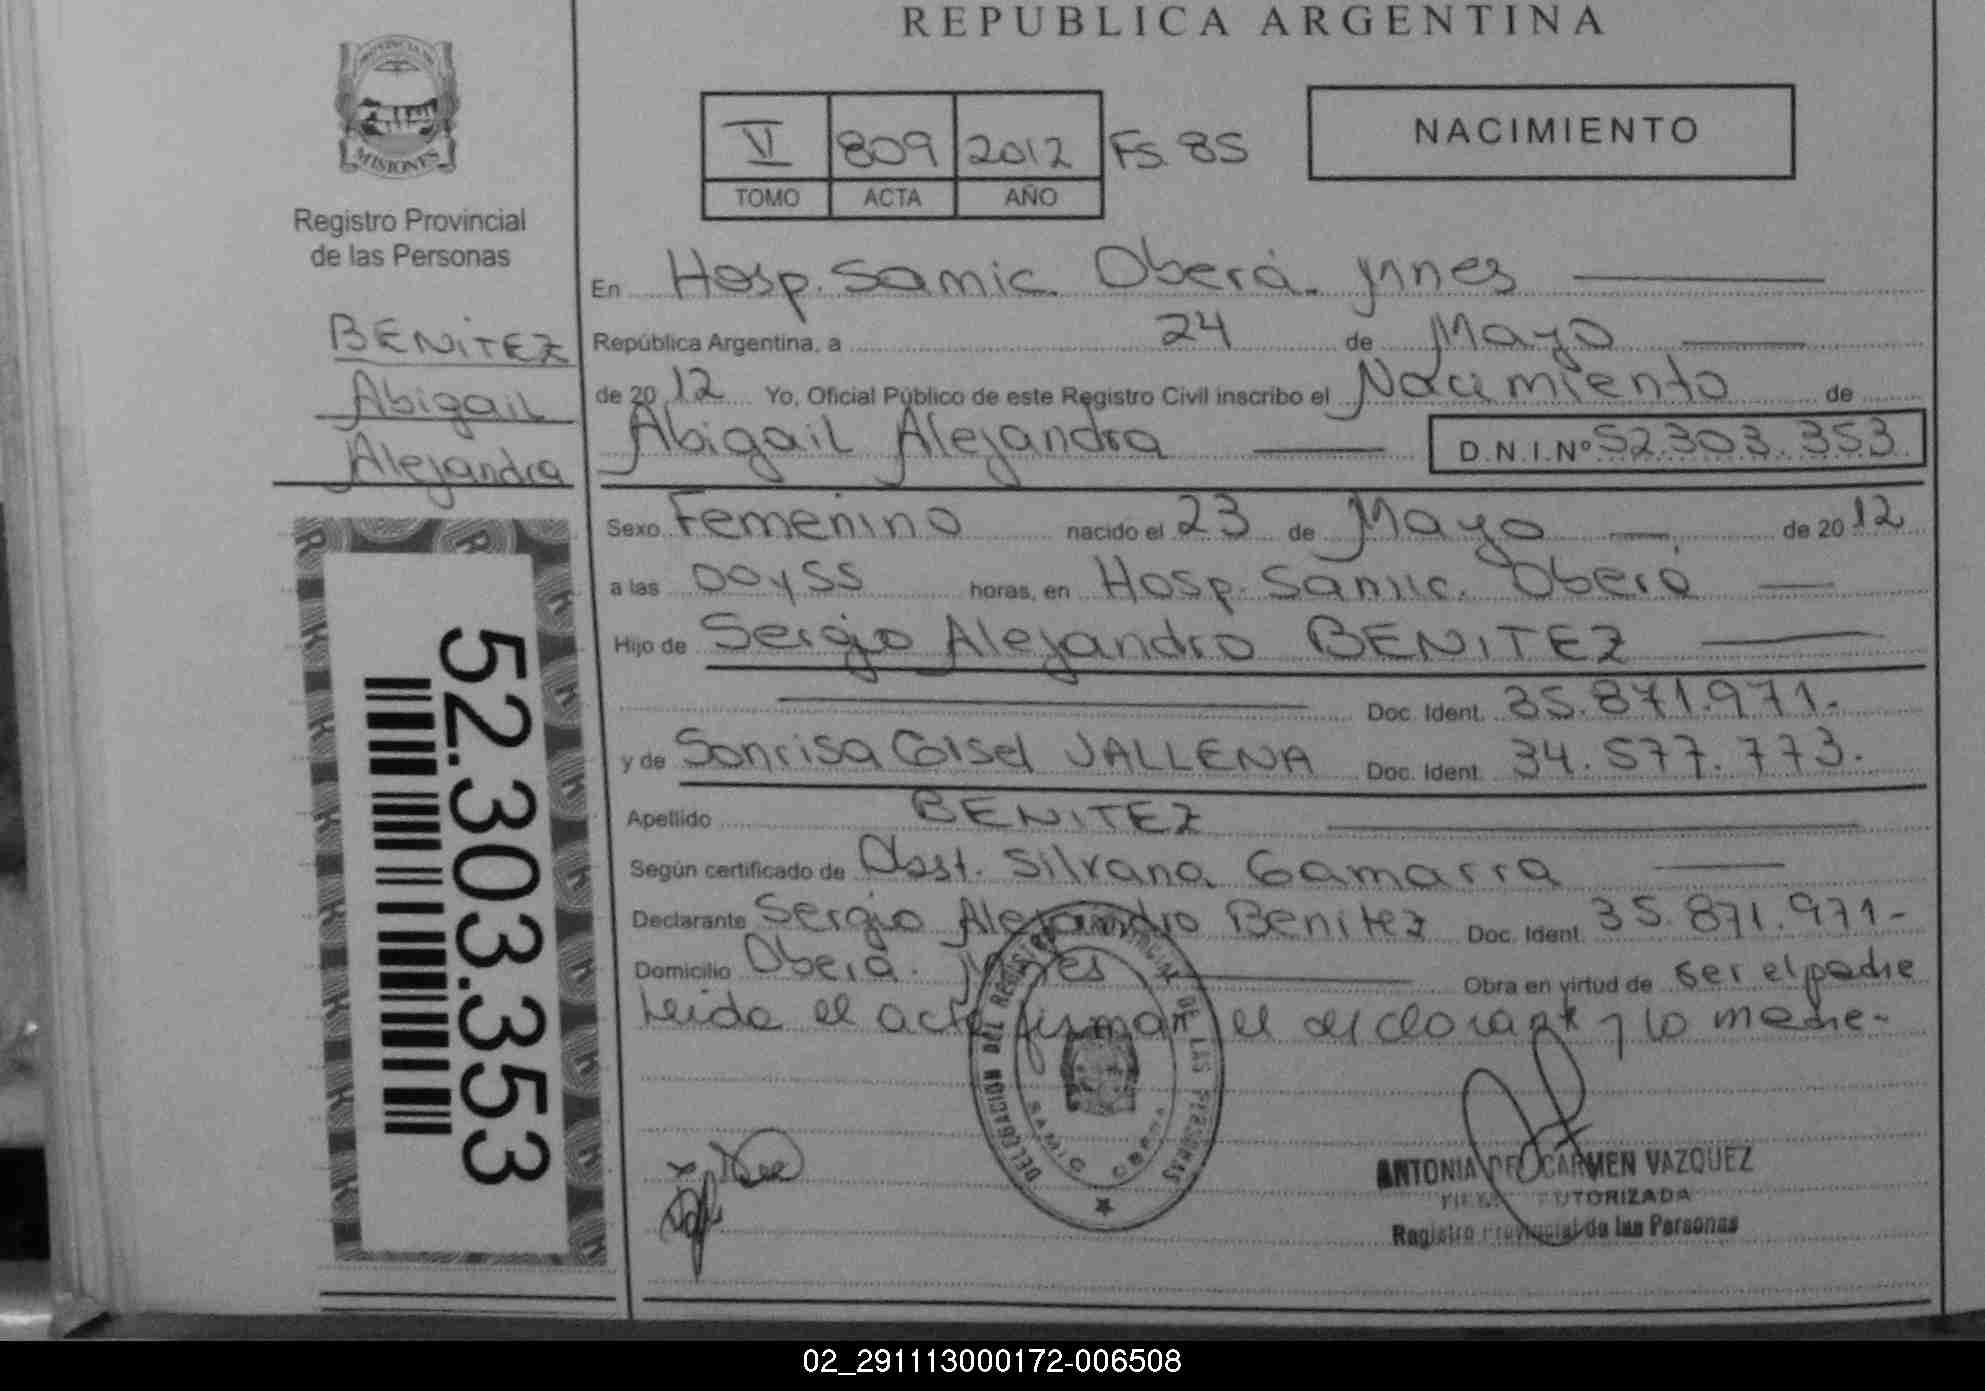 REPUBLICA ARGENTINA
PROVINCIA DE
MISIONES
Registro Provincial
de las Personas
BENITEZ
Abigail
Alejandra
52.303.353
VI 809 2012 Fs. 85
TOMO ACTA AÑO
NACIMIENTO
En Hosp. Samic. Oberá. Mnes
República Argentina, a 24 de Mayo
de 2012 Yo, Oficial Público de este Registro Civil inscribo el Nacimiento de
Abigail Alejandra D.N.I.Nº 52.303.353
Sexo Femenino nacido el 23 de Mayo de 2012
a las 00y55 horas, en Hosp. Samic. Oberá
Hijo de Sergio Alejandro BENITEZ
Doc. Ident. 35.871.971.
y de Sonrisa VALLENA Doc. Ident. 34.577.773.
Apellido BENITEZ
Según certificado de Obst. Silvana Gamarra
Declarante Sergio Alejandro Benitez Doc. Ident. 35.871.971-
Domicilio Oberá. Mnes Obra en virtud de ser el padre
Leida el acta firman el declarante y la madre-
DELEGACION DEL REGISTRO PROVINCIAL DE LAS PERSONAS
SAMIC OBERA
ANTONIA DEL CARMEN VAZQUEZ
AUTORIZADA
Registro Provincial de las Personas
02_291113000172-006508